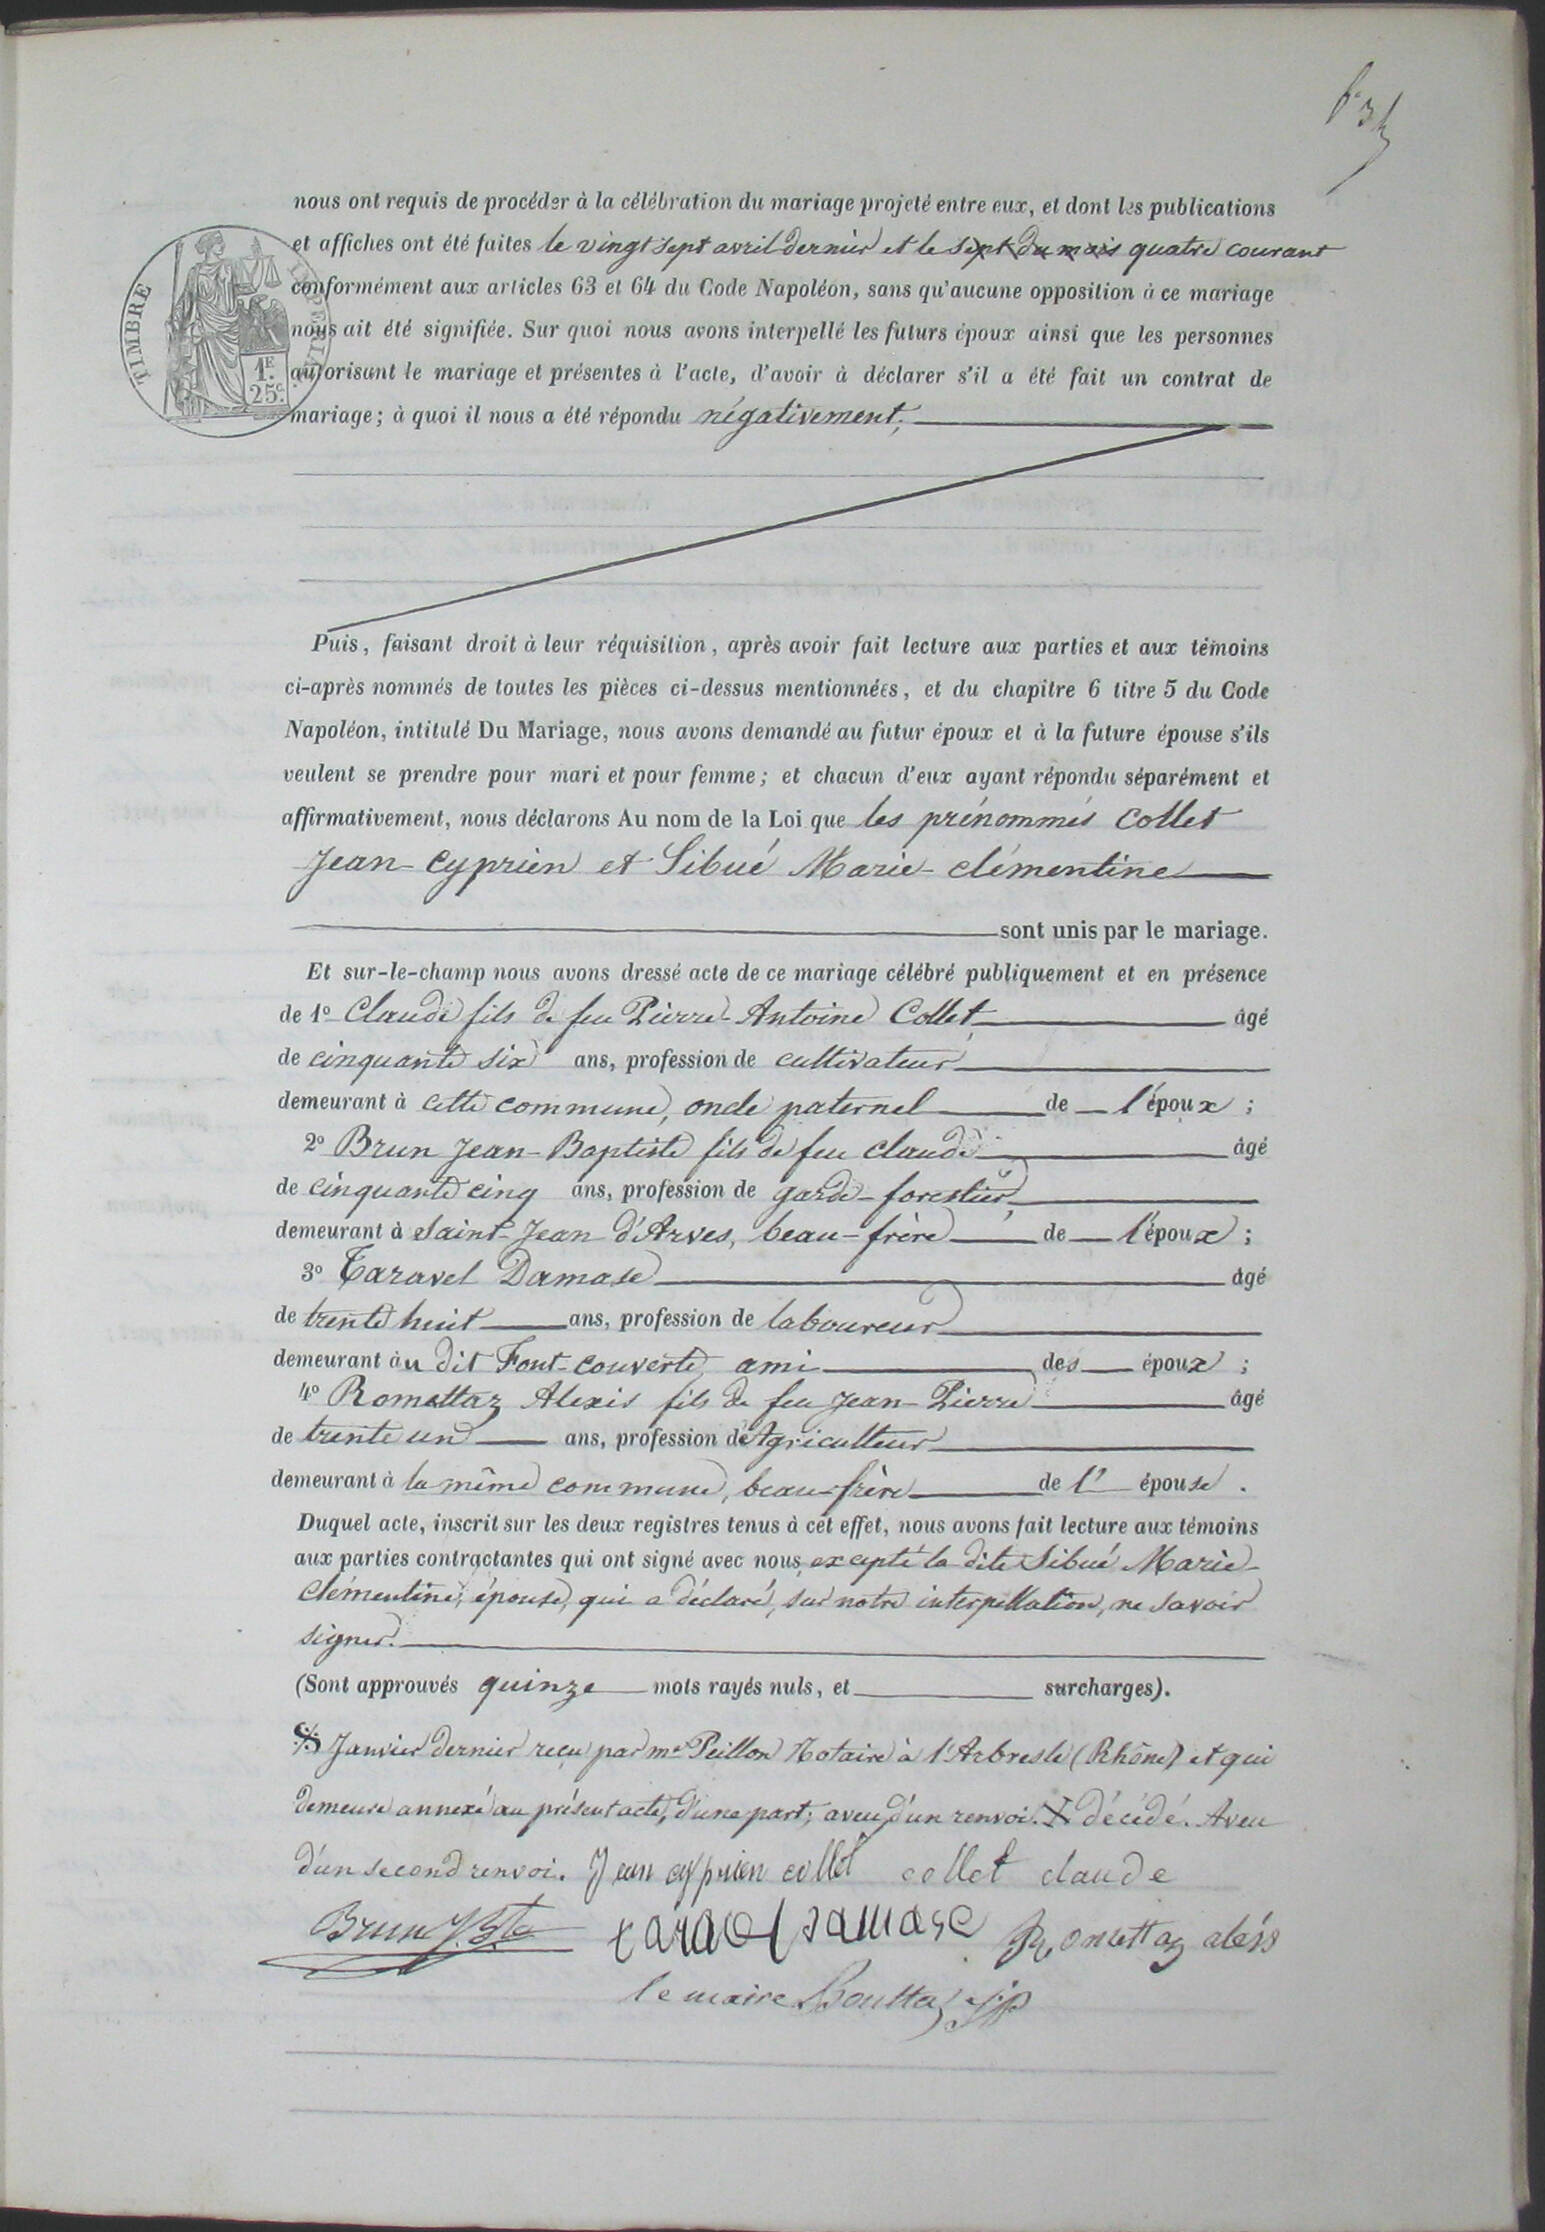 nous ont requis de procéder à la célébration du mariage projeté entre eux, et dont les publications
et affiches ont été faites le vingt sept avril dernier et le sept du mois quatre courant
conformément aux articles 63 et 64 du Code Napoléon, sans qu'aucune opposition à ce mariage
nous ait été signifiée. Sur quoi nous avons interpellé les futurs époux ainsi que les personnes
autorisant le mariage et présentes à l'acte, d'avoir à déclarer s'il a été fait un contrat de
mariage; à quoi il nous a été répondu négativement;
TIMBRE IMPERIAL
1F.
25c.
Puis, faisant droit à leur réquisition, après avoir fait lecture aux parties et aux témoins
ci-après nommés de toutes les pièces ci-dessus mentionnées, et du chapitre 6 titre 5 du Code
Napoléon, intitulé Du Mariage, nous avons demandé au futur époux et à la future épouse s'ils
veulent se prendre pour mari et pour femme; et chacun d'eux ayant répondu séparément et
affirmativement, nous déclarons Au nom de la Loi que les prénommés Collet
Jean-Cyprien et Sibué Marie-clémentine
sont unis par le mariage.
Et sur-le-champ nous avons dressé acte de ce mariage célébré publiquement et en présence
de 1o Claude fils de feu Pierre-Antoine Collet, âgé
de cinquante six ans, profession de cultivateur
demeurant à cette commune, oncle paternel de l'époux;
2o Brun Jean-Baptiste fils de feu claude âgé
de cinquante cinq ans, profession de garde-forestier,
demeurant à Saint-Jean d'Arves, beau-frère de l'époux;
3o Taravel Damase âgé
de trente huit ans, profession de laboureur
demeurant au dit Font-couverte, ami des époux;
4o Romettaz Alexis fils de feu Jean-Pierre âgé
de trente un ans, profession de Agriculteur
demeurant à la même commune, beau-frère de l' épouse.
Duquel acte, inscrit sur les deux registres tenus à cet effet, nous avons fait lecture aux témoins
aux parties contractantes qui ont signé avec nous, excepté la dite Sibué Marie-
clémentine, épouse, qui a déclaré, sur notre interpellation, ne savoir
signer.
(Sont approuvés quinze mots rayés nuls, et surcharges).
Janvier dernier reçu par me Peillon Notaire à l'Arbresle (Rhône) et qui
demeure annexé au présent acte, d'une part; aveu d'un renvoi. X décédé. Aveu
d'un second renvoi. Jean cyprien collet collet claude
Brun J. Bte taravel damase Romettaz aléxis
le maire